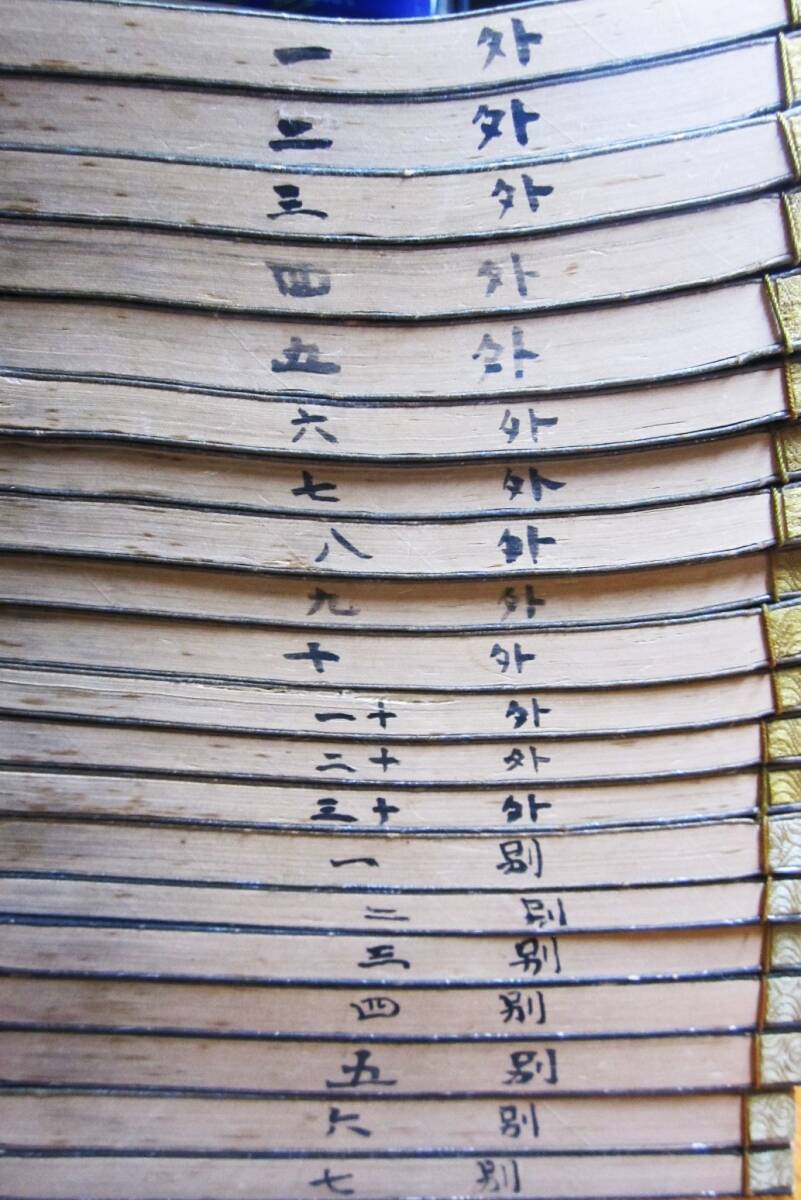 外 一
外 二
外 三
外 四
外 五
外 六
外 七
外 八
外 九
外 十
外 十一
外 十二
外 十三
别 一
别 二
别 三
别 四
别 五
别 六
别 七